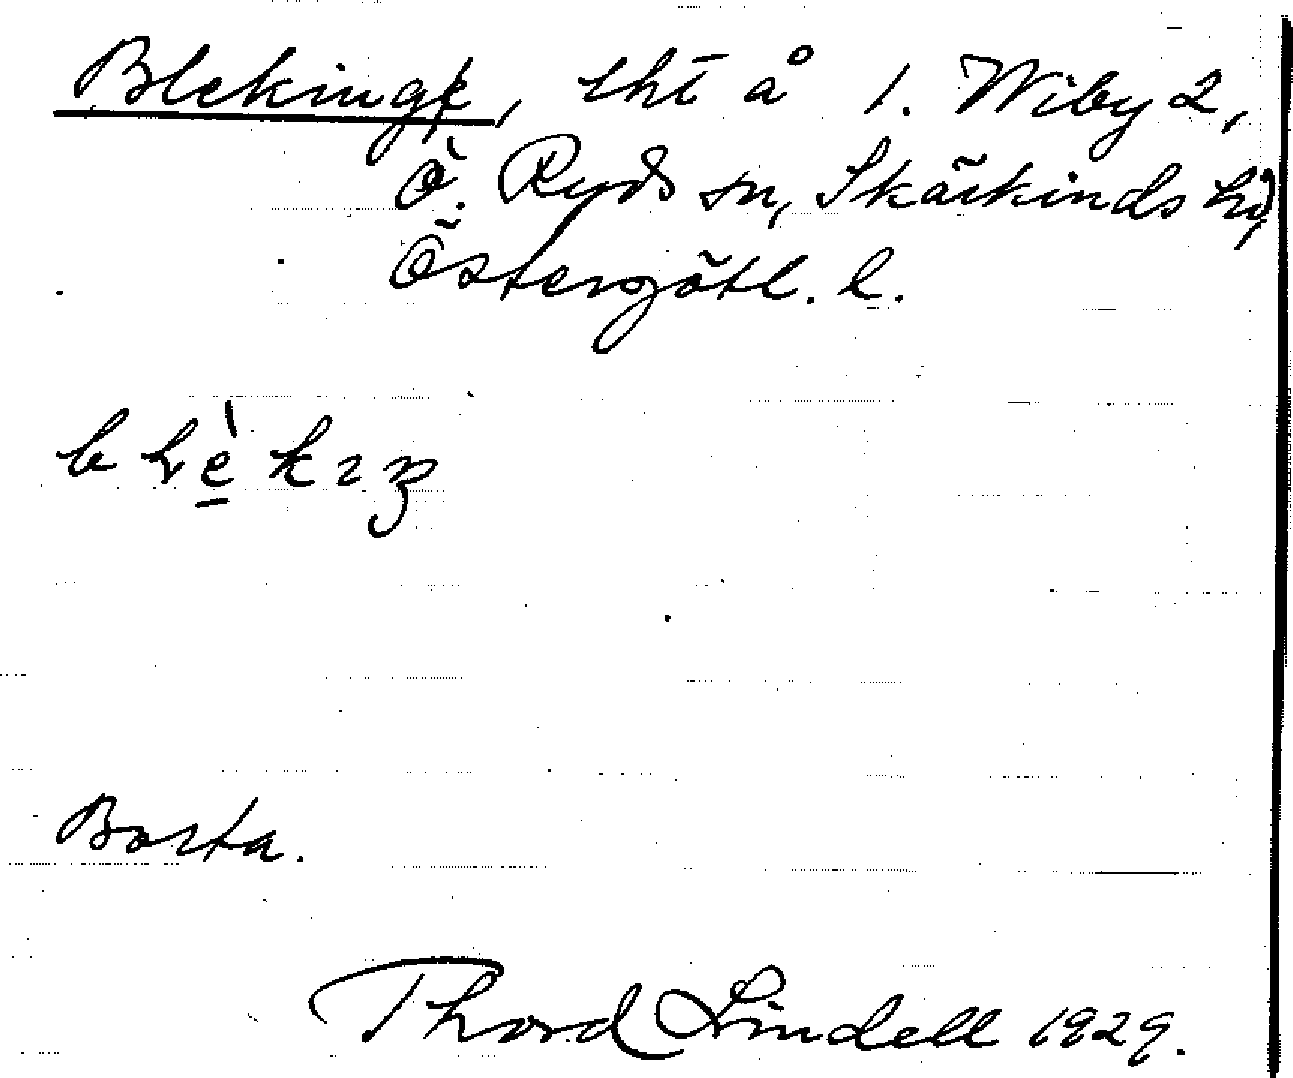 Blekinge, tht å 1. Wiby 2,
Ö. Ryds sn, Skärkinds hd,
Östergötl. l.
Borta.
Thord Lindell 1929.